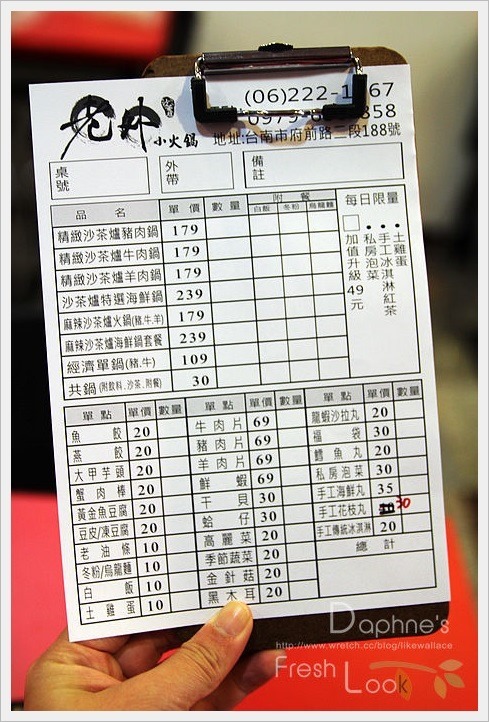 老井 小火鍋
(06)222-1 67
0979-6 358
地址:台南市府前路二段188號
桌號 外帶 備註
品名 單價 數量 附餐 每日限量
白飯 冬粉 烏龍麵
精緻沙茶爐豬肉鍋 179
精緻沙茶爐牛肉鍋 179
精緻沙茶爐羊肉鍋 179
沙茶爐特選海鮮鍋 239
麻辣沙茶爐火鍋(豬.牛.羊) 179
麻辣沙茶爐海鮮鍋套餐 239
經濟單鍋(豬.牛) 109
共鍋(附飲料.沙茶.附餐) 30
•土雞蛋
•手工冰淇淋紅茶
•私房泡菜
□加值升級49元
單點 單價 數量 單點 單價 數量 單點 單價 數量
魚餃 20 牛肉片 69 龍蝦沙拉丸 20
燕餃 20 豬肉片 69 福袋 30
大甲芋頭 20 羊肉片 69 鱈魚丸 20
蟹肉棒 20 鮮蝦 69 私房泡菜 30
黃金魚豆腐 20 干貝 30 手工海鮮丸 35
豆皮/凍豆腐 20 蛤仔 30 手工花枝丸 30
老油條 10 高麗菜 20 手工傳統冰淇淋 20
冬粉/烏龍麵 10 季節蔬菜 20 總計
白飯 10 金針菇 20
土雞蛋 10 黑木耳 20
Daphne's
http://www.wretch.cc/blog/likewallace
Fresh Look